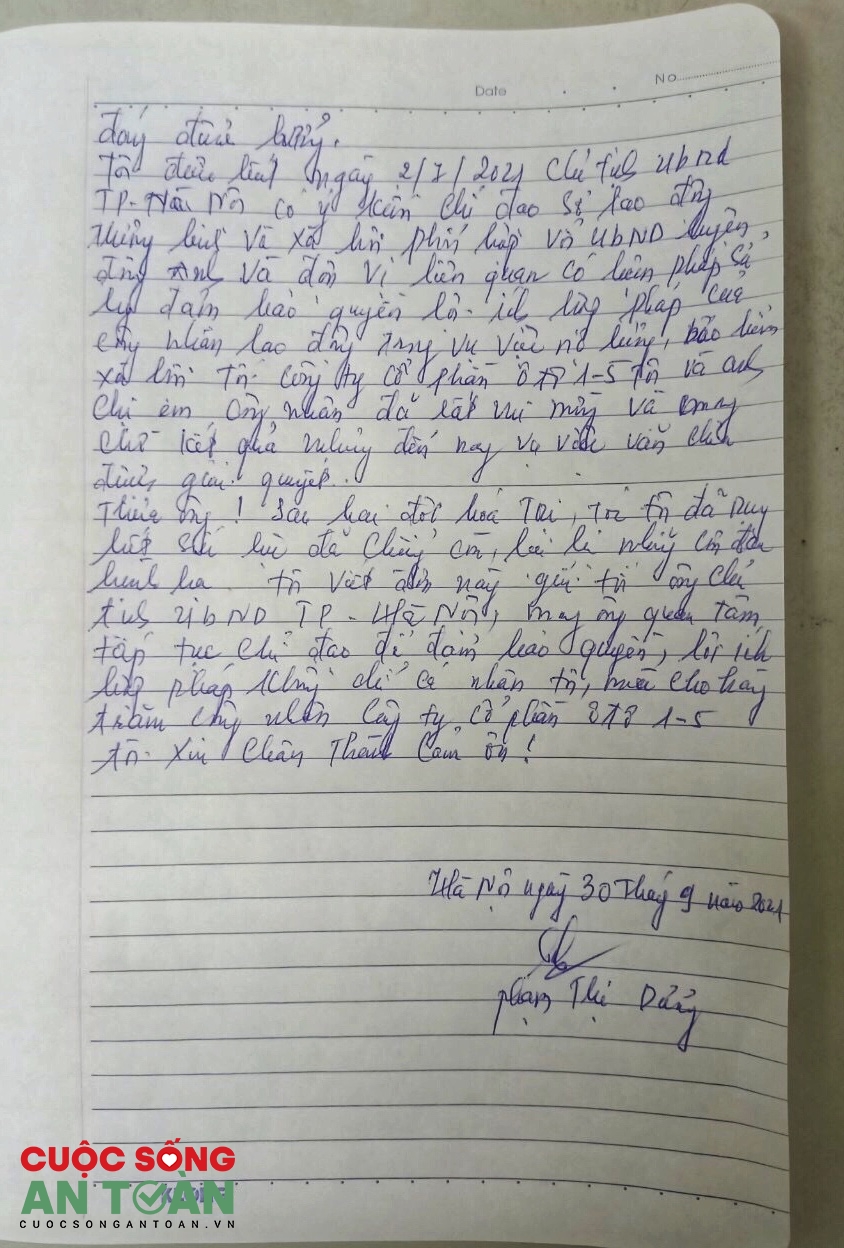 Date No
đáng được hưởng.
Tôi được biết ngày 2/7/2021 Chủ tịch UbNd
TP-Hà Nội có ý kiến chỉ đạo Sở lao động
thương binh và xã hội phối hợp với UbND huyện
đông Anh và đơn vị liên quan có biện pháp xử
lý đảm bảo quyền lợi ích hợp pháp của
công nhân lao động trong vụ việc nợ lương, bảo hiểm
xã hội tại công ty cổ phần ô tô 1-5 tôi và anh
Chị em công nhân đã rất vui mừng và mong
chờ kết quả nhưng đến nay vụ việc vẫn chưa
được giải quyết.
Thưa ông! Sau hai đợt hoá Trị, tôi đã suy
kiệt sức lực đã chẳng còn, lại là những cơn đau
hành hạ tôi viết đơn này gửi tới ông chủ
tịch UbND TP-Hà Nội, mong ông quan tâm,
tiếp tục chỉ đạo để đảm bảo quyền, lợi ích
hợp pháp không chỉ cá nhân tôi, mà cho hàng
trăm công nhân Công ty cổ phần ô tô 1-5
Tôi Xin Chân Thành Cảm ơn!
Hà Nội ngày 30 Tháng 9 năm 2021
phạm Thị Dung
CUỘC SỐNG
AN TOÀN
CUOCSONGANTOAN.VN